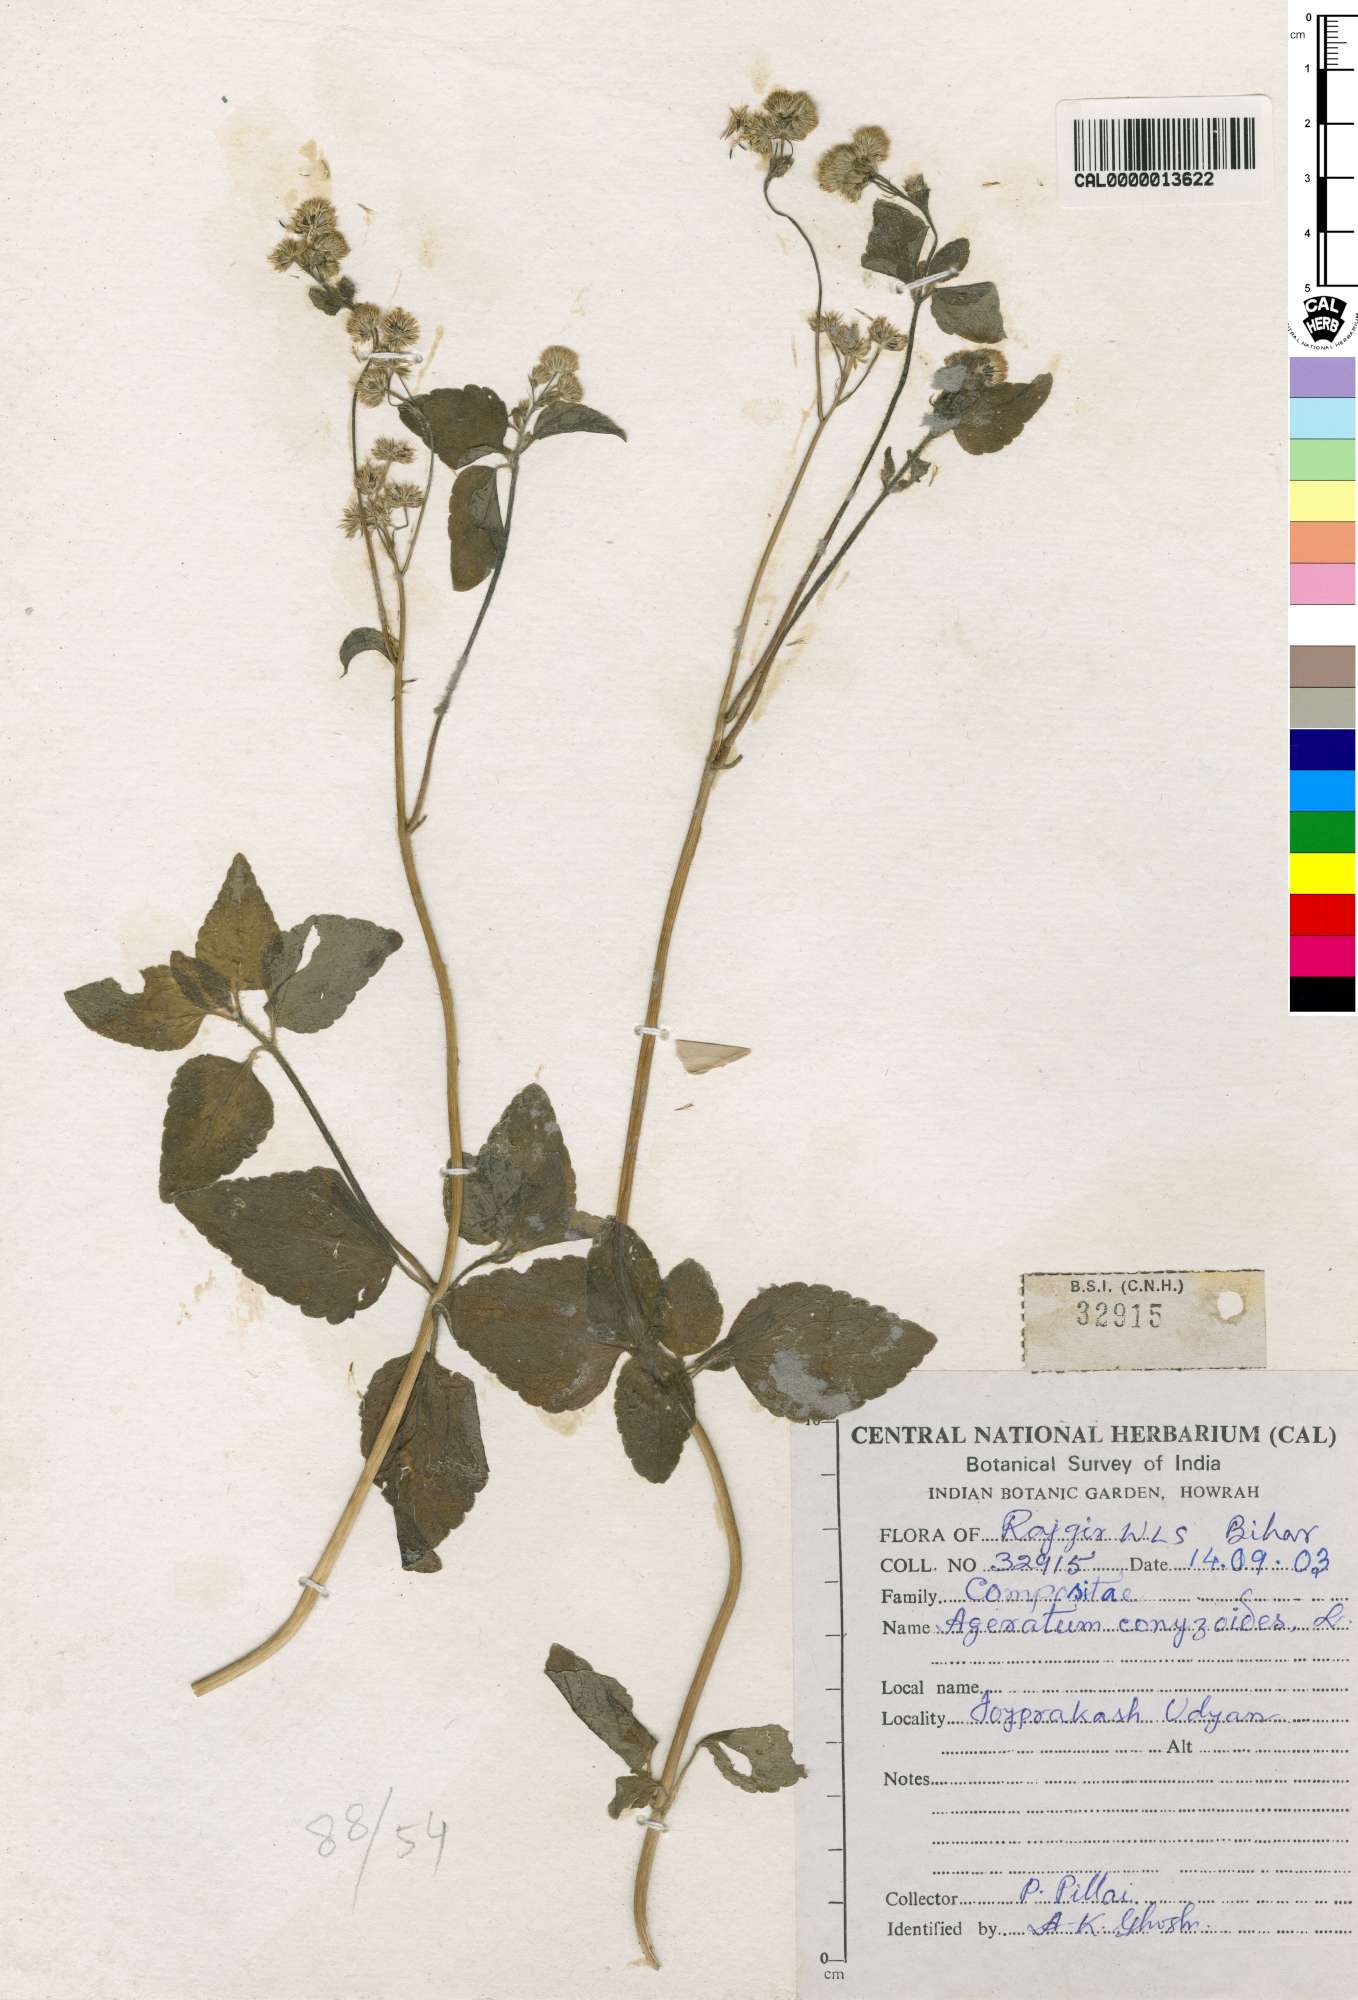 0
cm
1
2
3
4
5
CAL
HERB
CENTRAL NATIONAL HERBARIUM
CAL0000013622
B.S.I. (C.N.H.)
32915
10
CENTRAL NATIONAL HERBARIUM (CAL)
Botanical Survey of India
INDIAN BOTANIC GARDEN, HOWRAH
FLORA OF Rajgir WLS Bihar
COLL. NO 32915 Date 14.09.03
Family Compositae
Name Ageratum conyzoides, L.
Local name
Locality Joyprakash Udyan
Alt
Notes
Collector P. Pillai
Identified by A.K. Ghosh.
0
cm
88/54